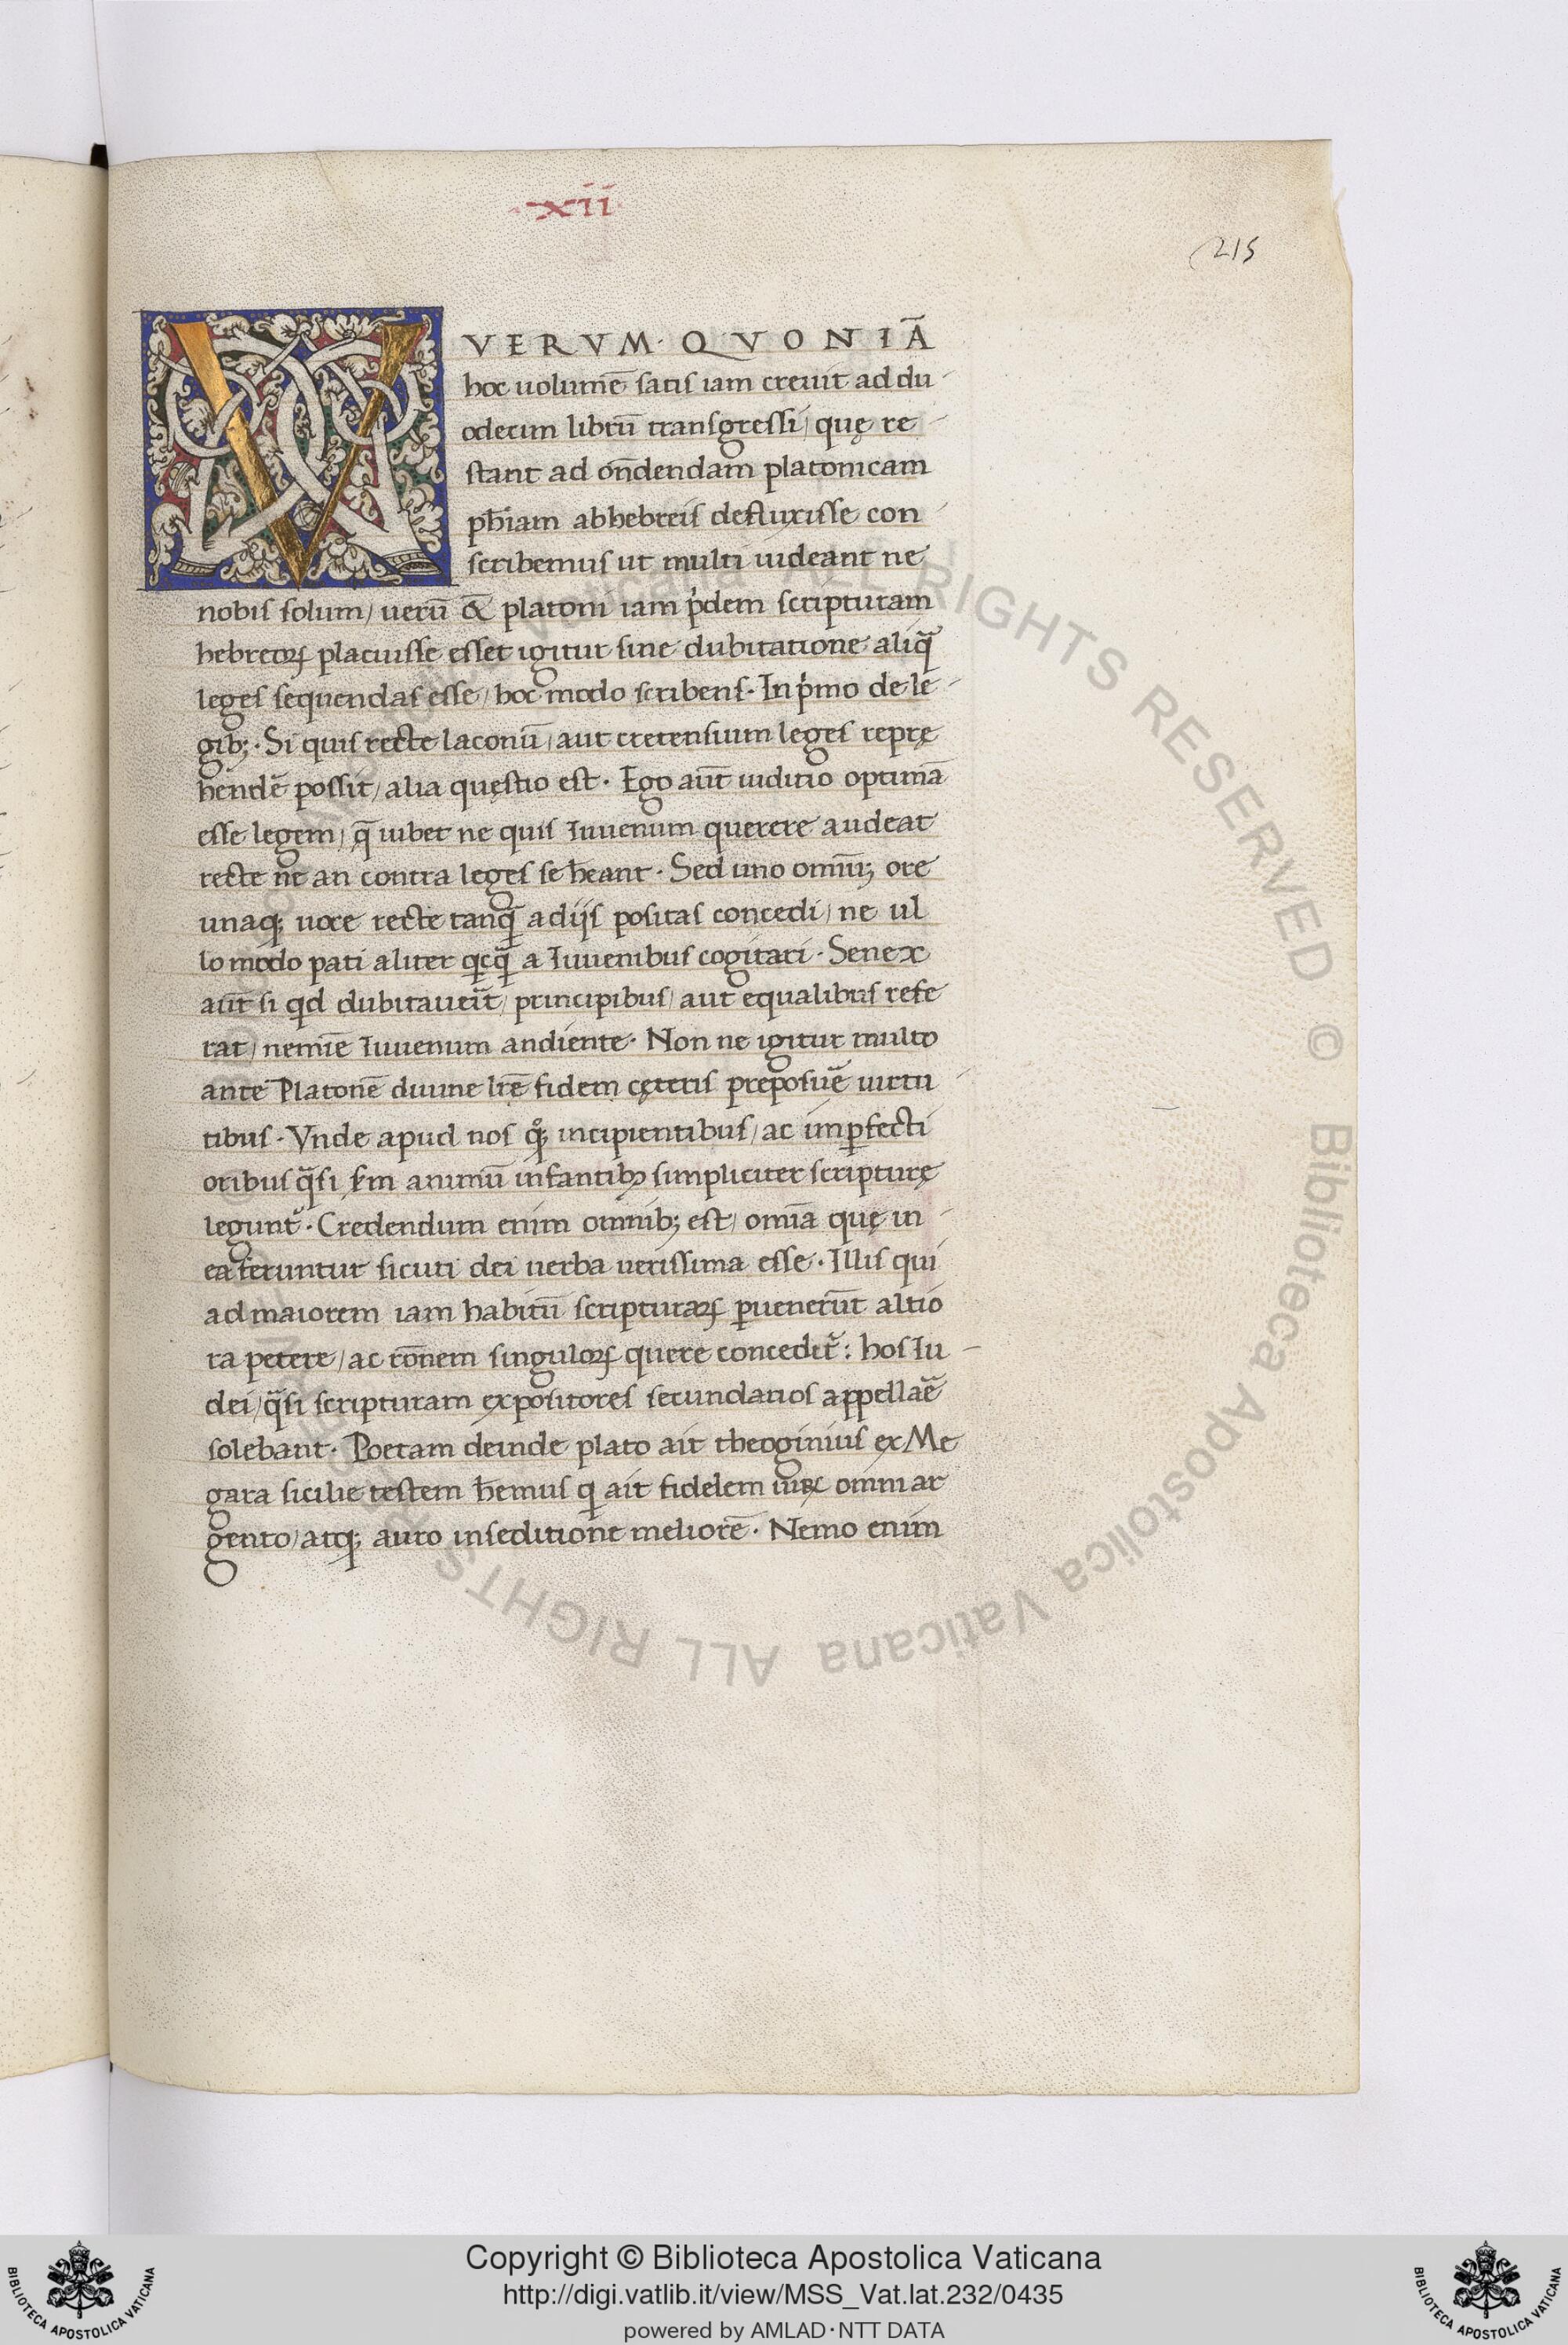 ·xii·
215
VERVM· QVONIĀ
hoc uolumē satis iam creuit ad du
odecim librū transgressi/ quę re
stant ad on̄dendam platonicam
ph̄iam ab hebreis defluxisse con
scribemus ut multi uideant ne
nobis solum/ uerū & platoni iam p̍dem scripturam
hebreoꝝ placuisse esset igitur sine dubitatione aliq̄
leges sequendas esse/ hoc modo scribens· In p̍mo de le
gib;· Si quis recte laconū/ aut cretensium leges reprę
hendē possit/ alia quęstio est· Ego aūt iuditio optimā
esse legem/ q̄ iubet ne quis Iuuenum querere audeat
recte ne an contra leges se h̄eant· Sed uno omniū; ore
unaq; uoce recte tanq̄ a dijs positas concedi/ ne ul
lo modo pati aliter qcq̄ a Iuuenibus cogitari· Senex
aūt si qd dubitauerit/ principibus/ aut equalibus refe
rat/ nemīe Iuuenum audiente· Non ne igitur multo
ante Platonē diuine lr̄ę fidem cęteris preposuē uirtu
tibus· Vnde apud nos qͦ; incipientibus/ ac imꝑfecti
oribus q̄si s̄m animū infantibꝫ simpliciter scripturę
legunt᷑· Credendum enim omnib; est/ omīa quę in
ea feruntur sicuti dei uerba uerissima esse· Illis qui
ad maiorem iam habitū scripturaꝝ ꝑuenerūt altio
ra petere/ ac rōnem singuloꝝ quere concedit᷑: hos Iu
dei/ q̄si scripturam expositores secundarios appellaē
solebant· Poetam deinde plato ait theoginius ex Me
gara sicilie testem h̄emus q ait fidelem uiꝝ omni ar
gento/ atq; auro in seditione meliorē· Nemo enim
Copyright © Biblioteca Apostolica Vaticana
http://digi.vatlib.it/view/MSS_Vat.lat.232/0435
powered by AMLAD·NTT DATA